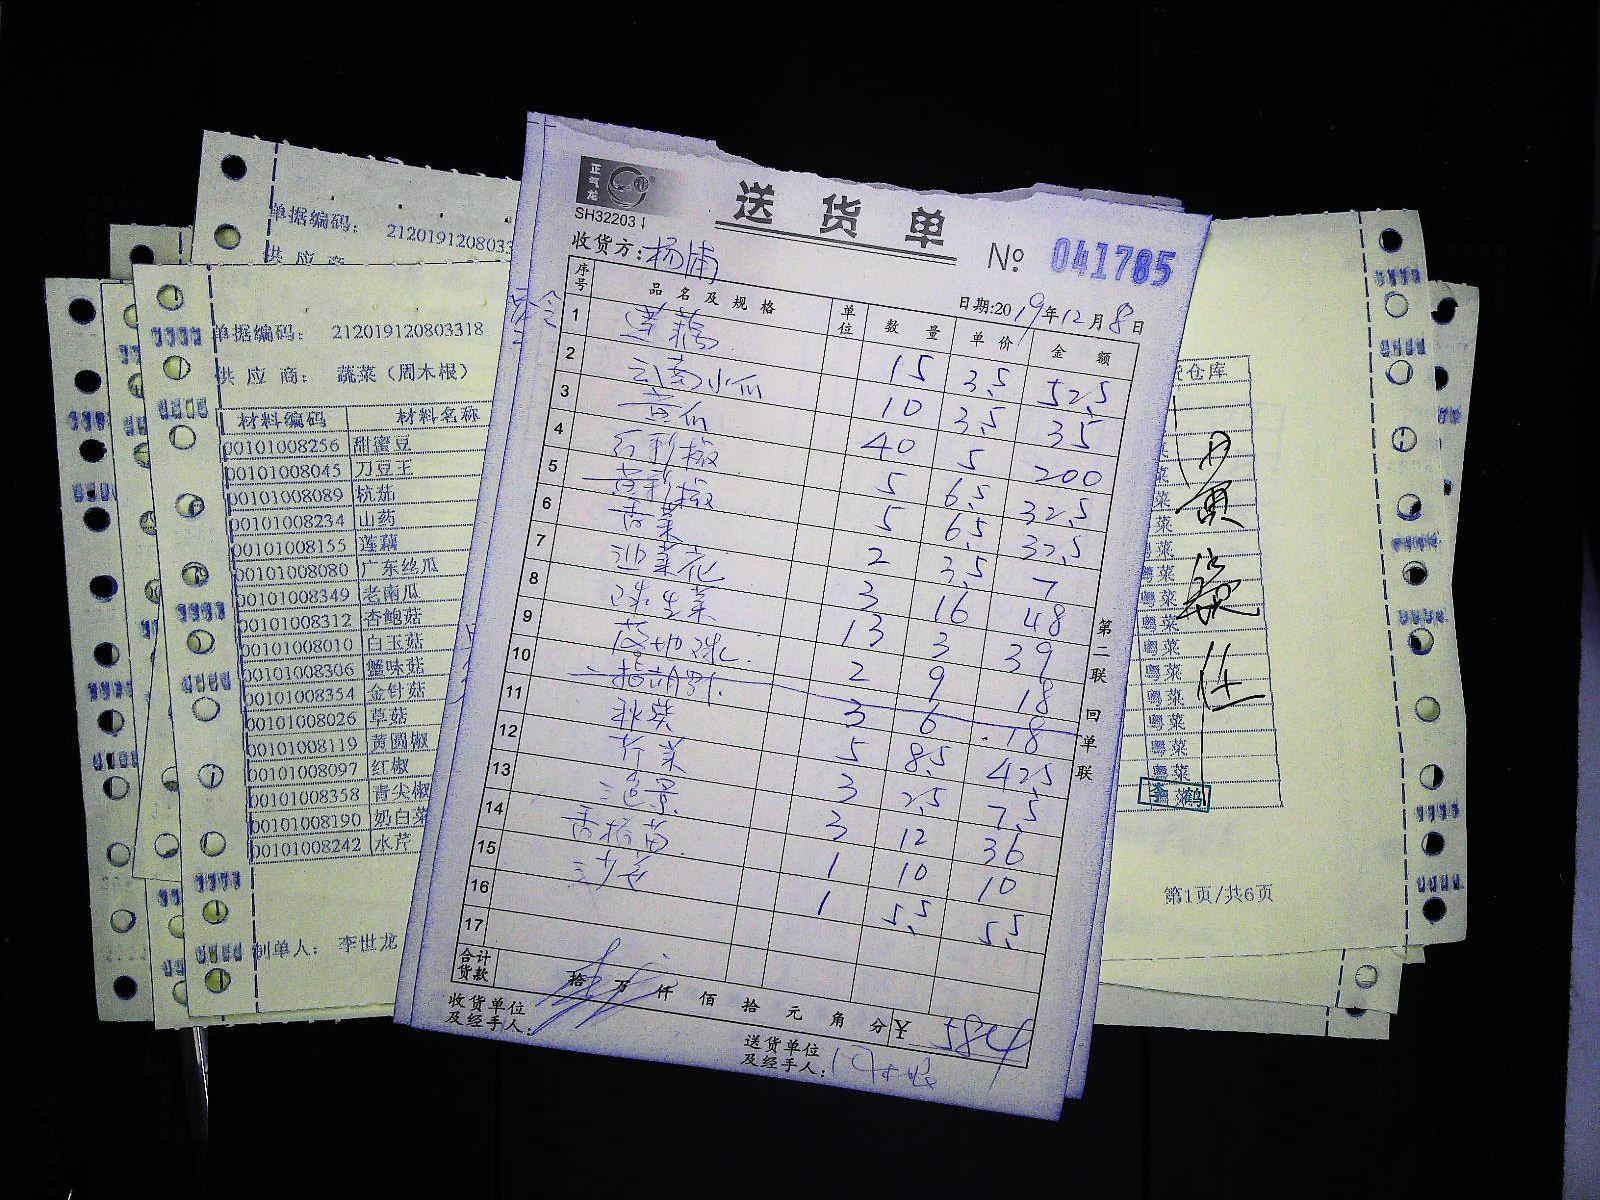 正气龙
SH32203
送货单
No 041785
收货方:杨浦
日期:2019年12月8日
序号 品名及规格 单位 数量 单价 金额
1 莲藕 15 3.5 52.5
2 云南小瓜 10 3.5 35
3 黄瓜 40 5 200
4 红彩椒 5 6.5 32.5
5 黄彩椒 5 6.5 32.5
6 香菜 2 3.5 7
7 3 16 48
8 球生菜 13 3 39
9 2 9 18
10 3 6 18
11 秋葵 5 8.5 42.5
12 芹菜 3 2.5 7.5
13 3 12 36
14 1 10 10
15 1 5.5 5.5
16
17
合计货款 拾 万 仟 佰 拾 元 角 分 ¥ 584
收货单位及经手人:
送货单位及经手人:
第二联 回单联
单据编码: 2120191208033
供应商
单据编码: 212019120803318
供应商: 蔬菜(周木根)
材料编码 材料名称
00101008256 甜蜜豆
00101008045 刀豆王
00101008089 杭茄
00101008234 山药
00101008155 莲藕
00101008080 广东丝瓜
00101008349 老南瓜
00101008312 杏鲍菇
00101008010 白玉菇
00101008306 蟹味菇
00101008354 金针菇
00101008026 草菇
00101008119 黄圆椒
00101008097 红椒
00101008358 青尖椒
00101008190 奶白菜
00101008242 水芹
制单人: 李世龙
仓库
粤菜
粤菜
粤菜
粤菜
粤菜
粤菜
粤菜
粤菜
粤菜
第1页/共6页